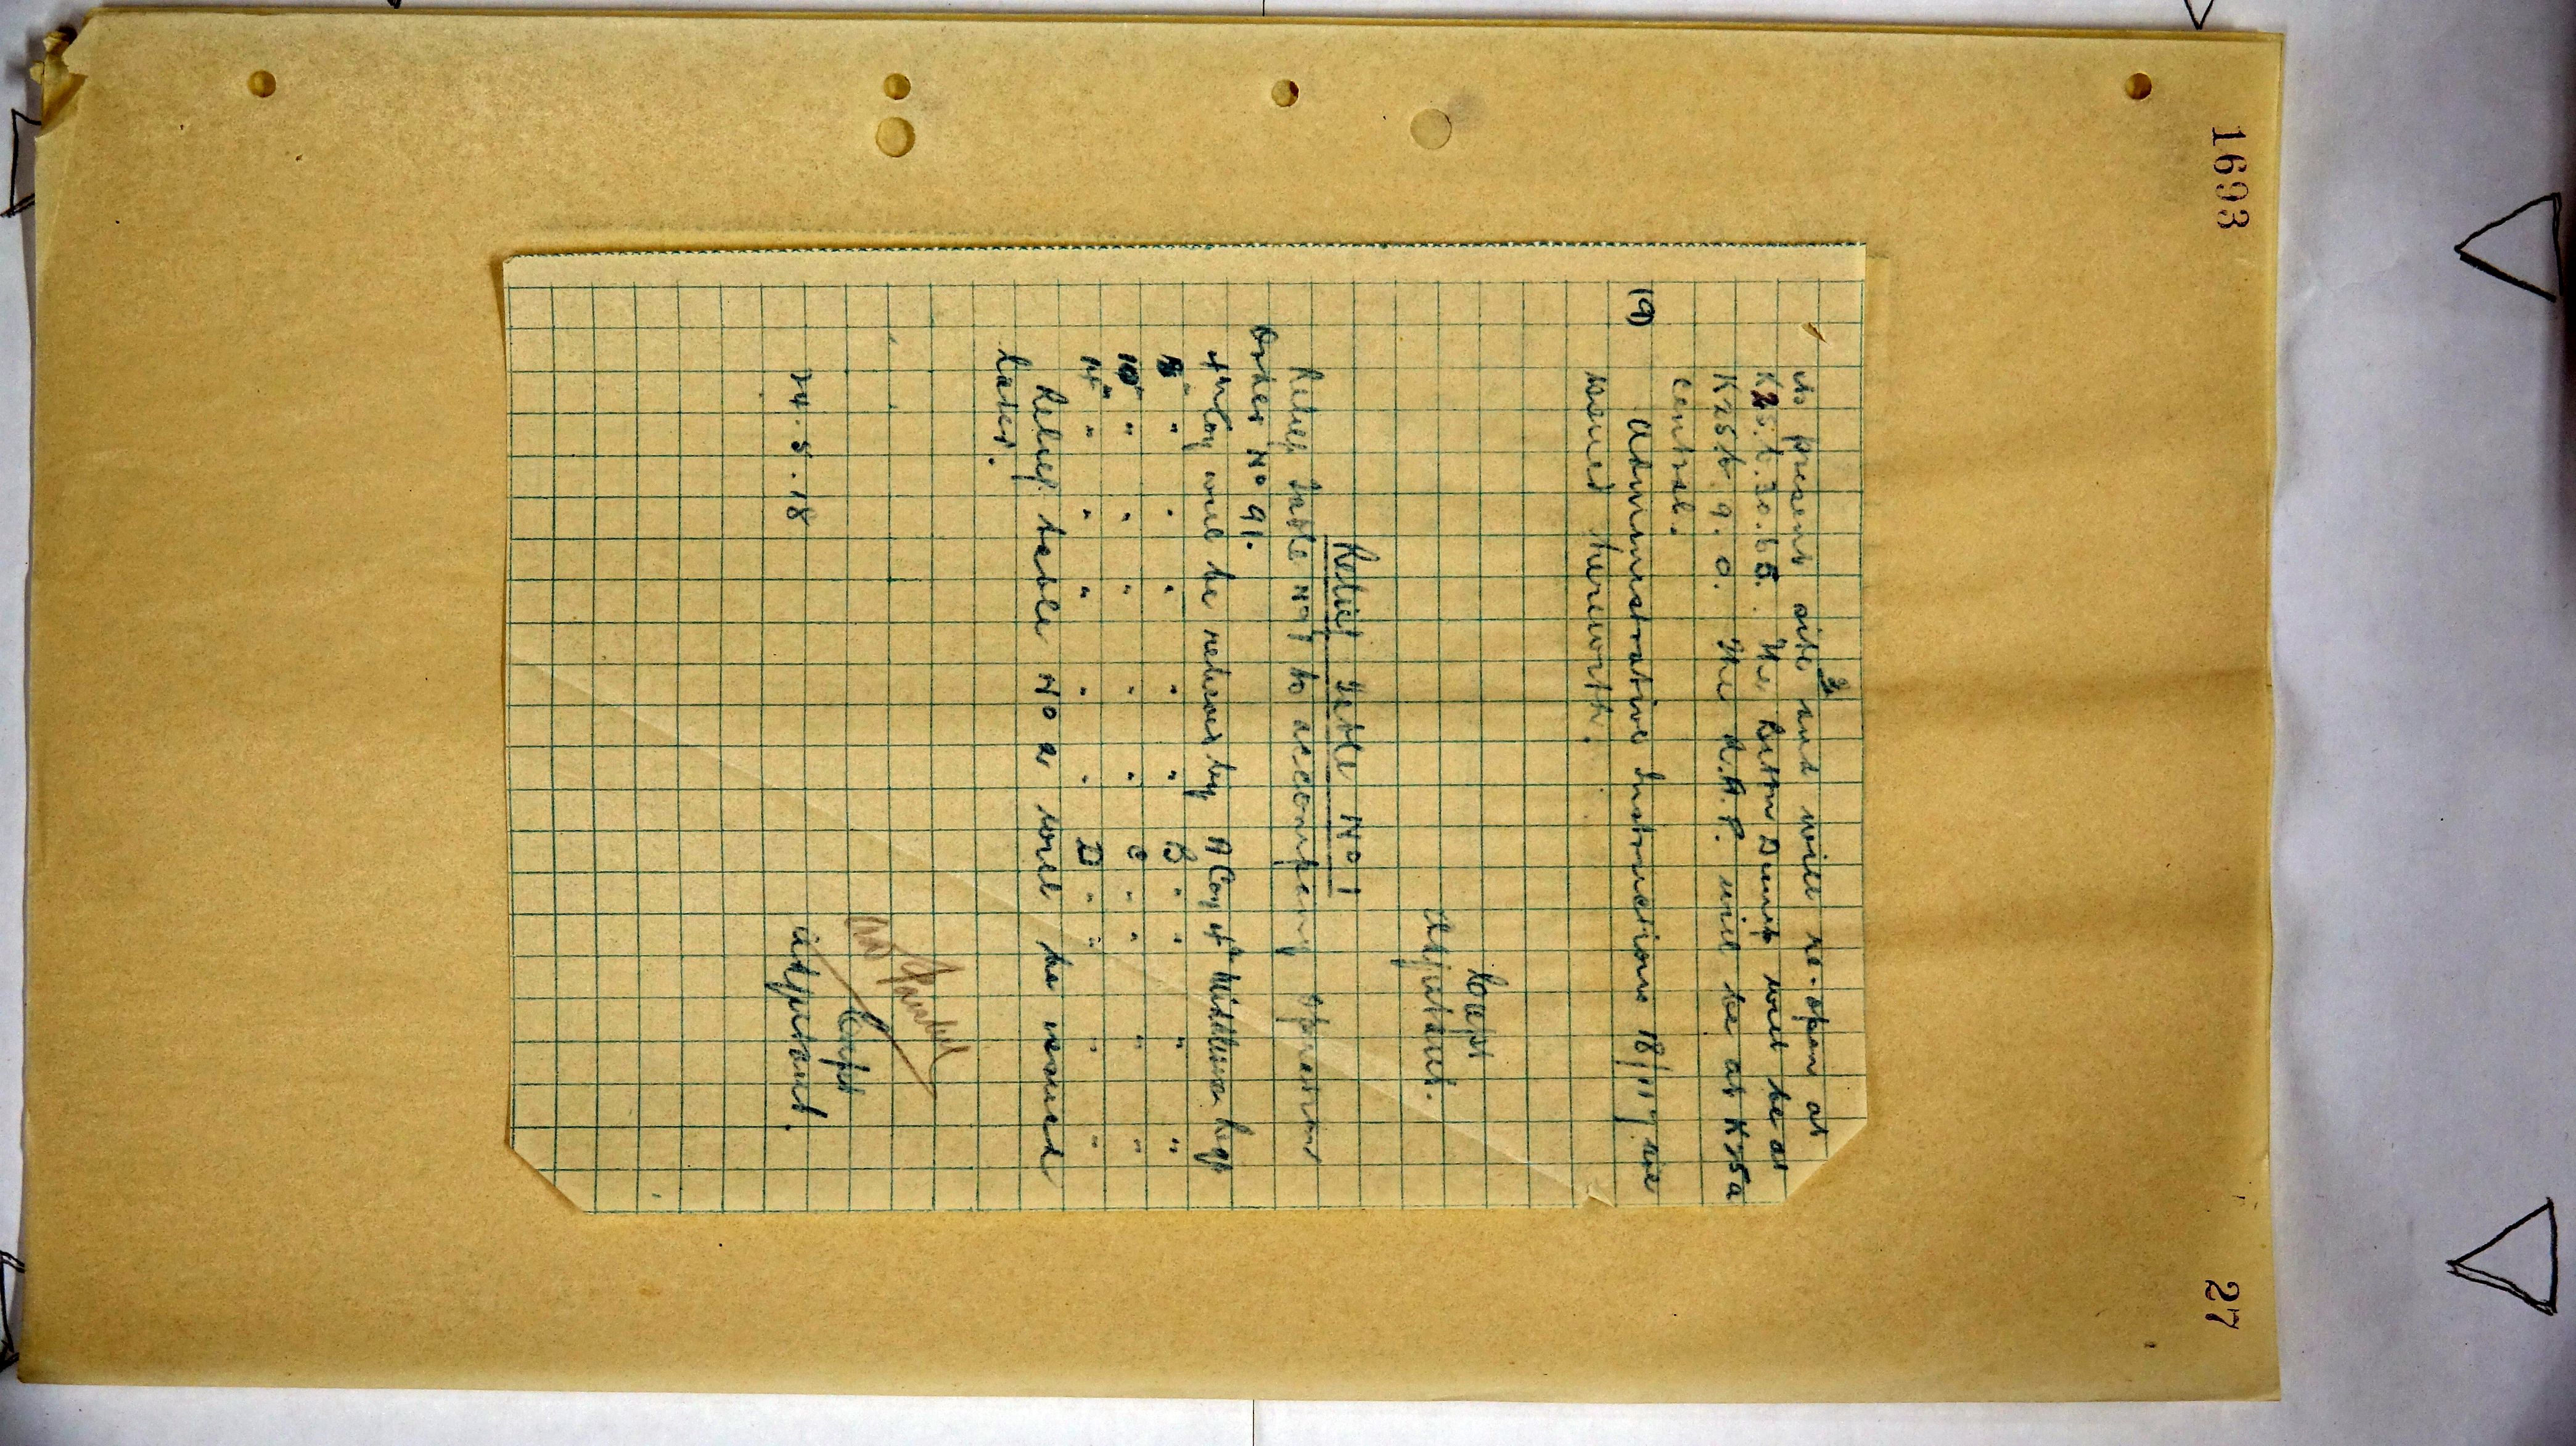 1693
27
3
its present site and will re-open at
K25.b.30.65. The Battn Dump will be at
K25b.9.0. The R.A.P. will be at K25a
central.
19) Administrative Instructions 18/11 are
issued herewith.
Capt
Adjutant.
Relief Table No 1
Relief Table No 1 to accompany Operation
Order No 91.
4th Coy will be relieved by A Coy 4th Middlesex Regt
8" " " " " " B " " " "
10" " " " " " C " " " "
14" " " " " " D " " " "
Relief table No 2 will be issued
later.
Capt
24.5.18 Adjutant.